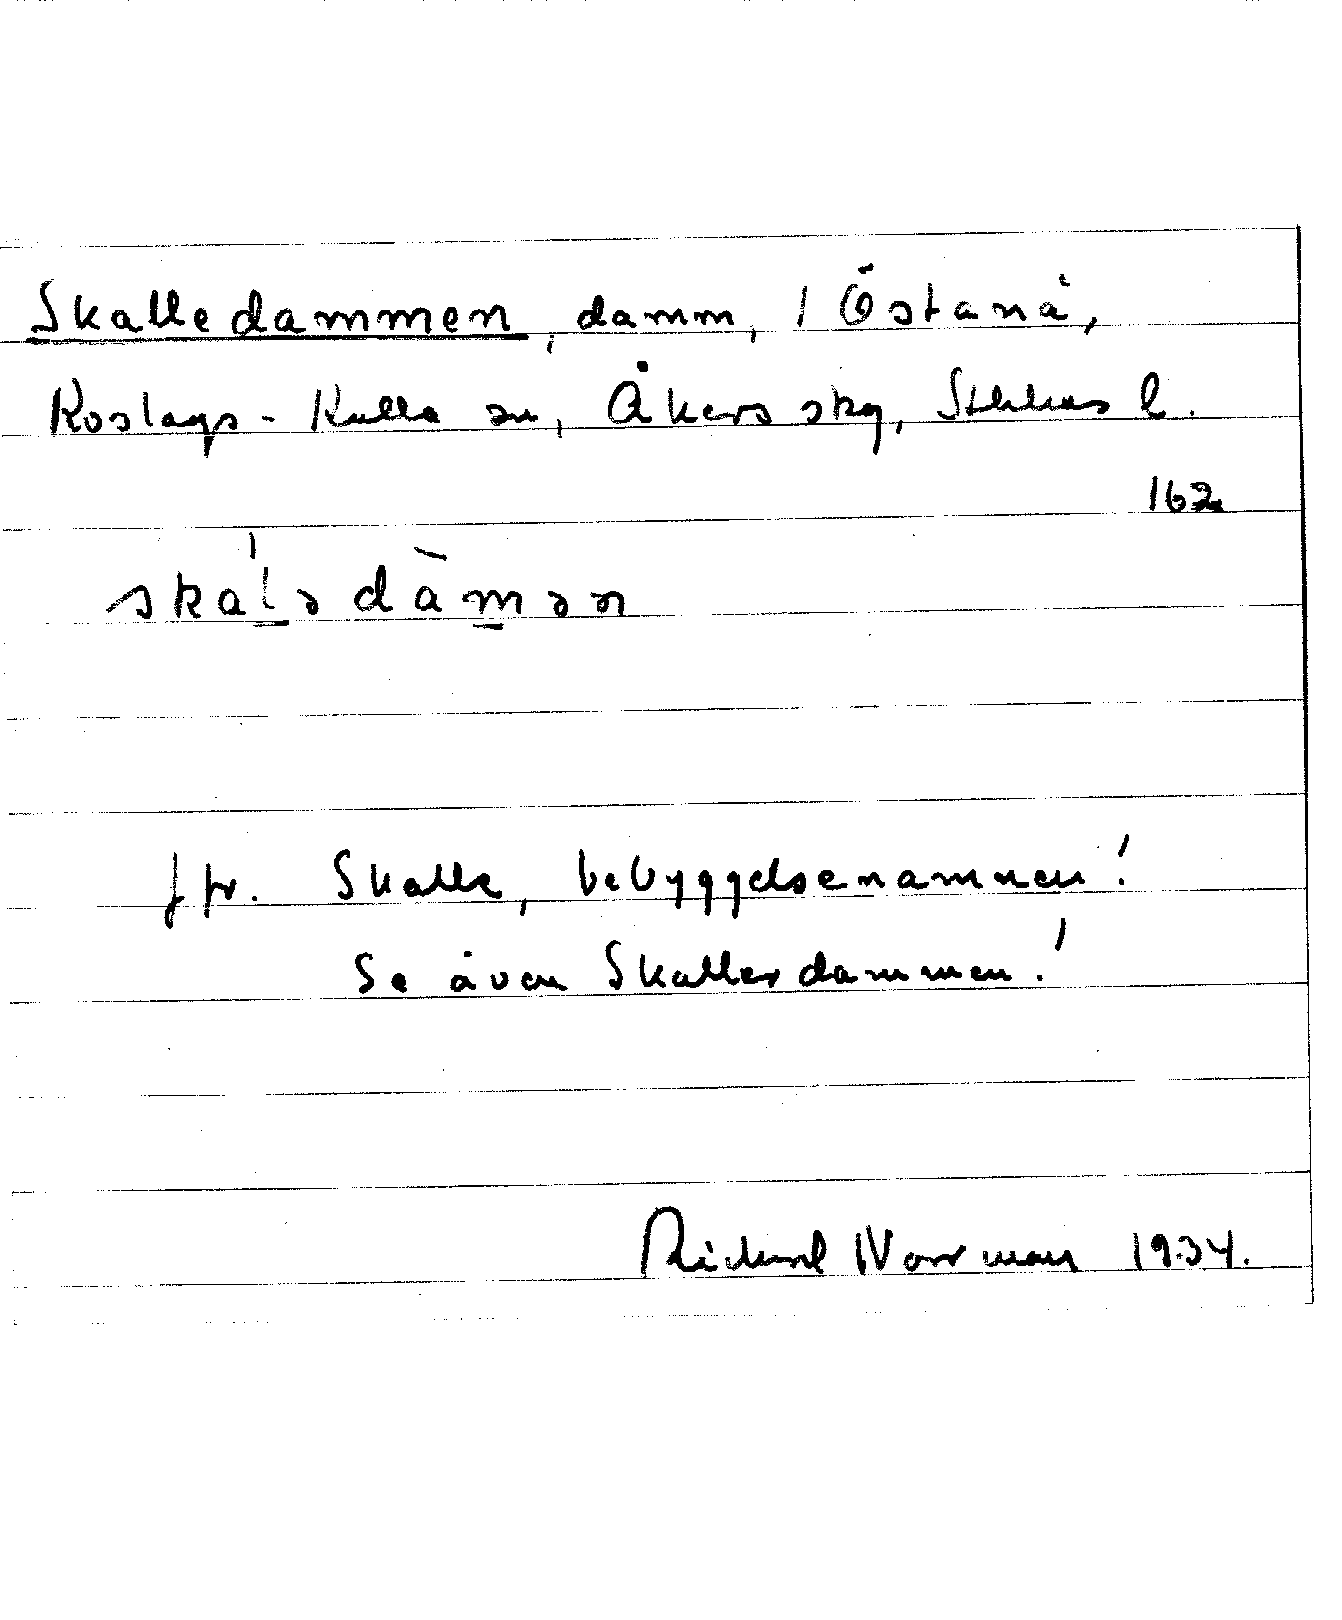 Skalledammen, damm, 1 Östanå,
Roslags-Kulla sn, Åkers skg, Sthlms l.
162
skál̠ədàm̠ən
Jfr. Skalle, bebyggelsenamnen!
Se även Skallerdammen!
Rickard Norrman 1934.